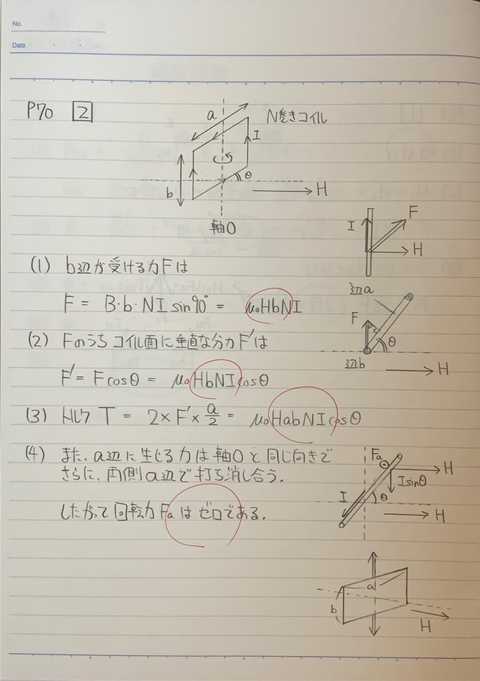 No.
Date
P70 [2]
N巻きコイル
a
I
b
θ
H
軸O
I
F
H
(1) b辺が受ける力Fは
F = B・b・NI sin90° = μ₀HbNI
辺a
(2) Fのうちコイル面に垂直な分力F'は
F
θ
辺b
H
F' = Fcosθ = μ₀HbNIcosθ
(3) トルク T = 2×F'×a/2 = μ₀HabNIcosθ
(4) また、a辺に生じる力は軸Oと同じ向きで
さらに、両側a辺で打ち消し合う。
したがって回転力Faはゼロである。
Fa
H
I
Isinθ
θ
H
a
b
H